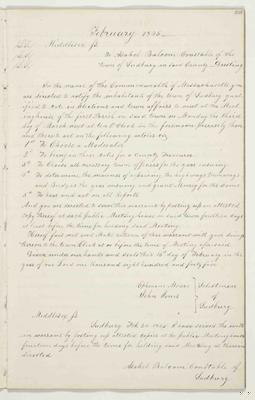 February 1845
Middlesex ss
To Asahel Balcom Constable of the
town of Sudbury in said County Greeting
In the name of the Commonwealth of Massachusetts you
are directed to notify the inhabitants of the town of Sudbury qual-
ified to vote in Elections and town affairs to meet at the Meet-
inghouse of the first Parish in said town on Monday the third
day of March next at ten O'Clock in the forenoon precisely then
and there to act on the following articles viz
1st To Choose a Moderator
2d To bring in their votes for a County Treasurer
3d To Choose all necessary town officers for the year ensuing
4th To determine the manner of repairing the highways &
and Bridges the year ensuing and grant Money for the same
5th To hear and act on all reports
And you are directed to serve this warrant by posting up an attested
copy thereof at each public Meeting house in said town fourteen days
at least before the time for holding said Meeting.
Hereof fail not and Make return of this warrant with your doings
thereon to the town Clerk at or before the time of Meeting aforesaid
Given under our hands and seals this day of February in the
year of our Lord one thousand eight hundred and forty five
Selectmen
of
Sudbury
Middlesex ss
Sudbury Feb 1845 I have served the with-
in warrant by posting up attested copies at the public Meetinghouses
fourteen days before the time for holding said Meeting as therein
directed
Asahel Balcom Constable of
Sudbury